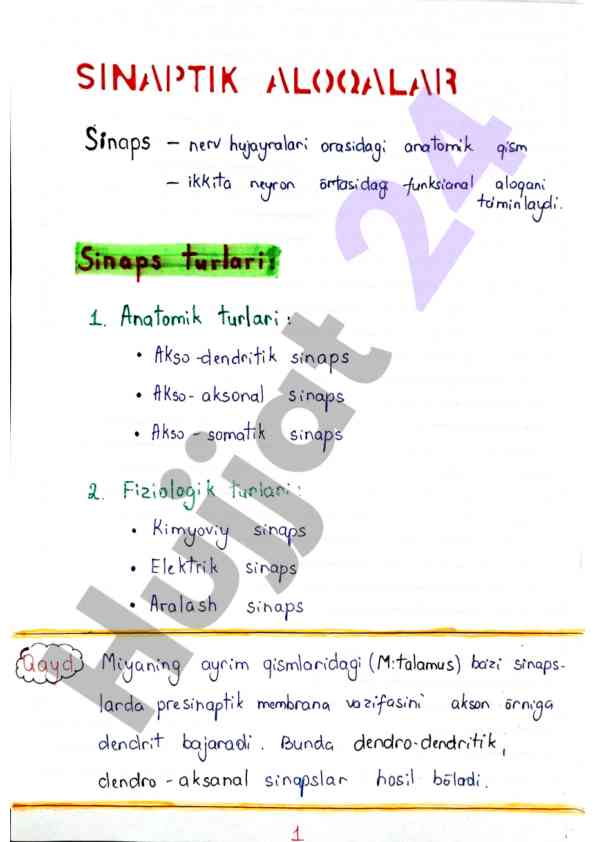 SINAPTIK ALOQALAR
Sinaps – nerv hujayralari orasidagi anatomik qism
– ikkita neyron õrtasidag funksianal aloqani
ta'minlaydi.
Sinaps turlari:
1. Anatomik turlari:
• Akso-dendritik sinaps
• Akso-aksonal sinaps
• Akso-somatik sinaps
2. Fiziologik turlari:
• Kimyoviy sinaps
• Elektrik sinaps
• Aralash sinaps
Qayd Miyaning ayrim qismlaridagi (M:talamus) ba'zi sinaps-
larda presinaptik membrana vazifasini akson õrniga
dendrit bajaradi. Bunda dendro-dendritik,
dendro-aksanal sinapslar hosil bõladi.
1
Hujjat 24